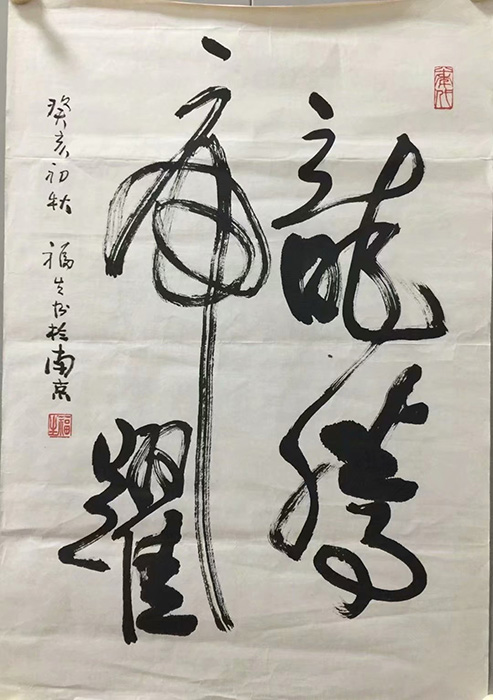 龍騰
虎躍
癸亥初秋 福生书於南京
福生